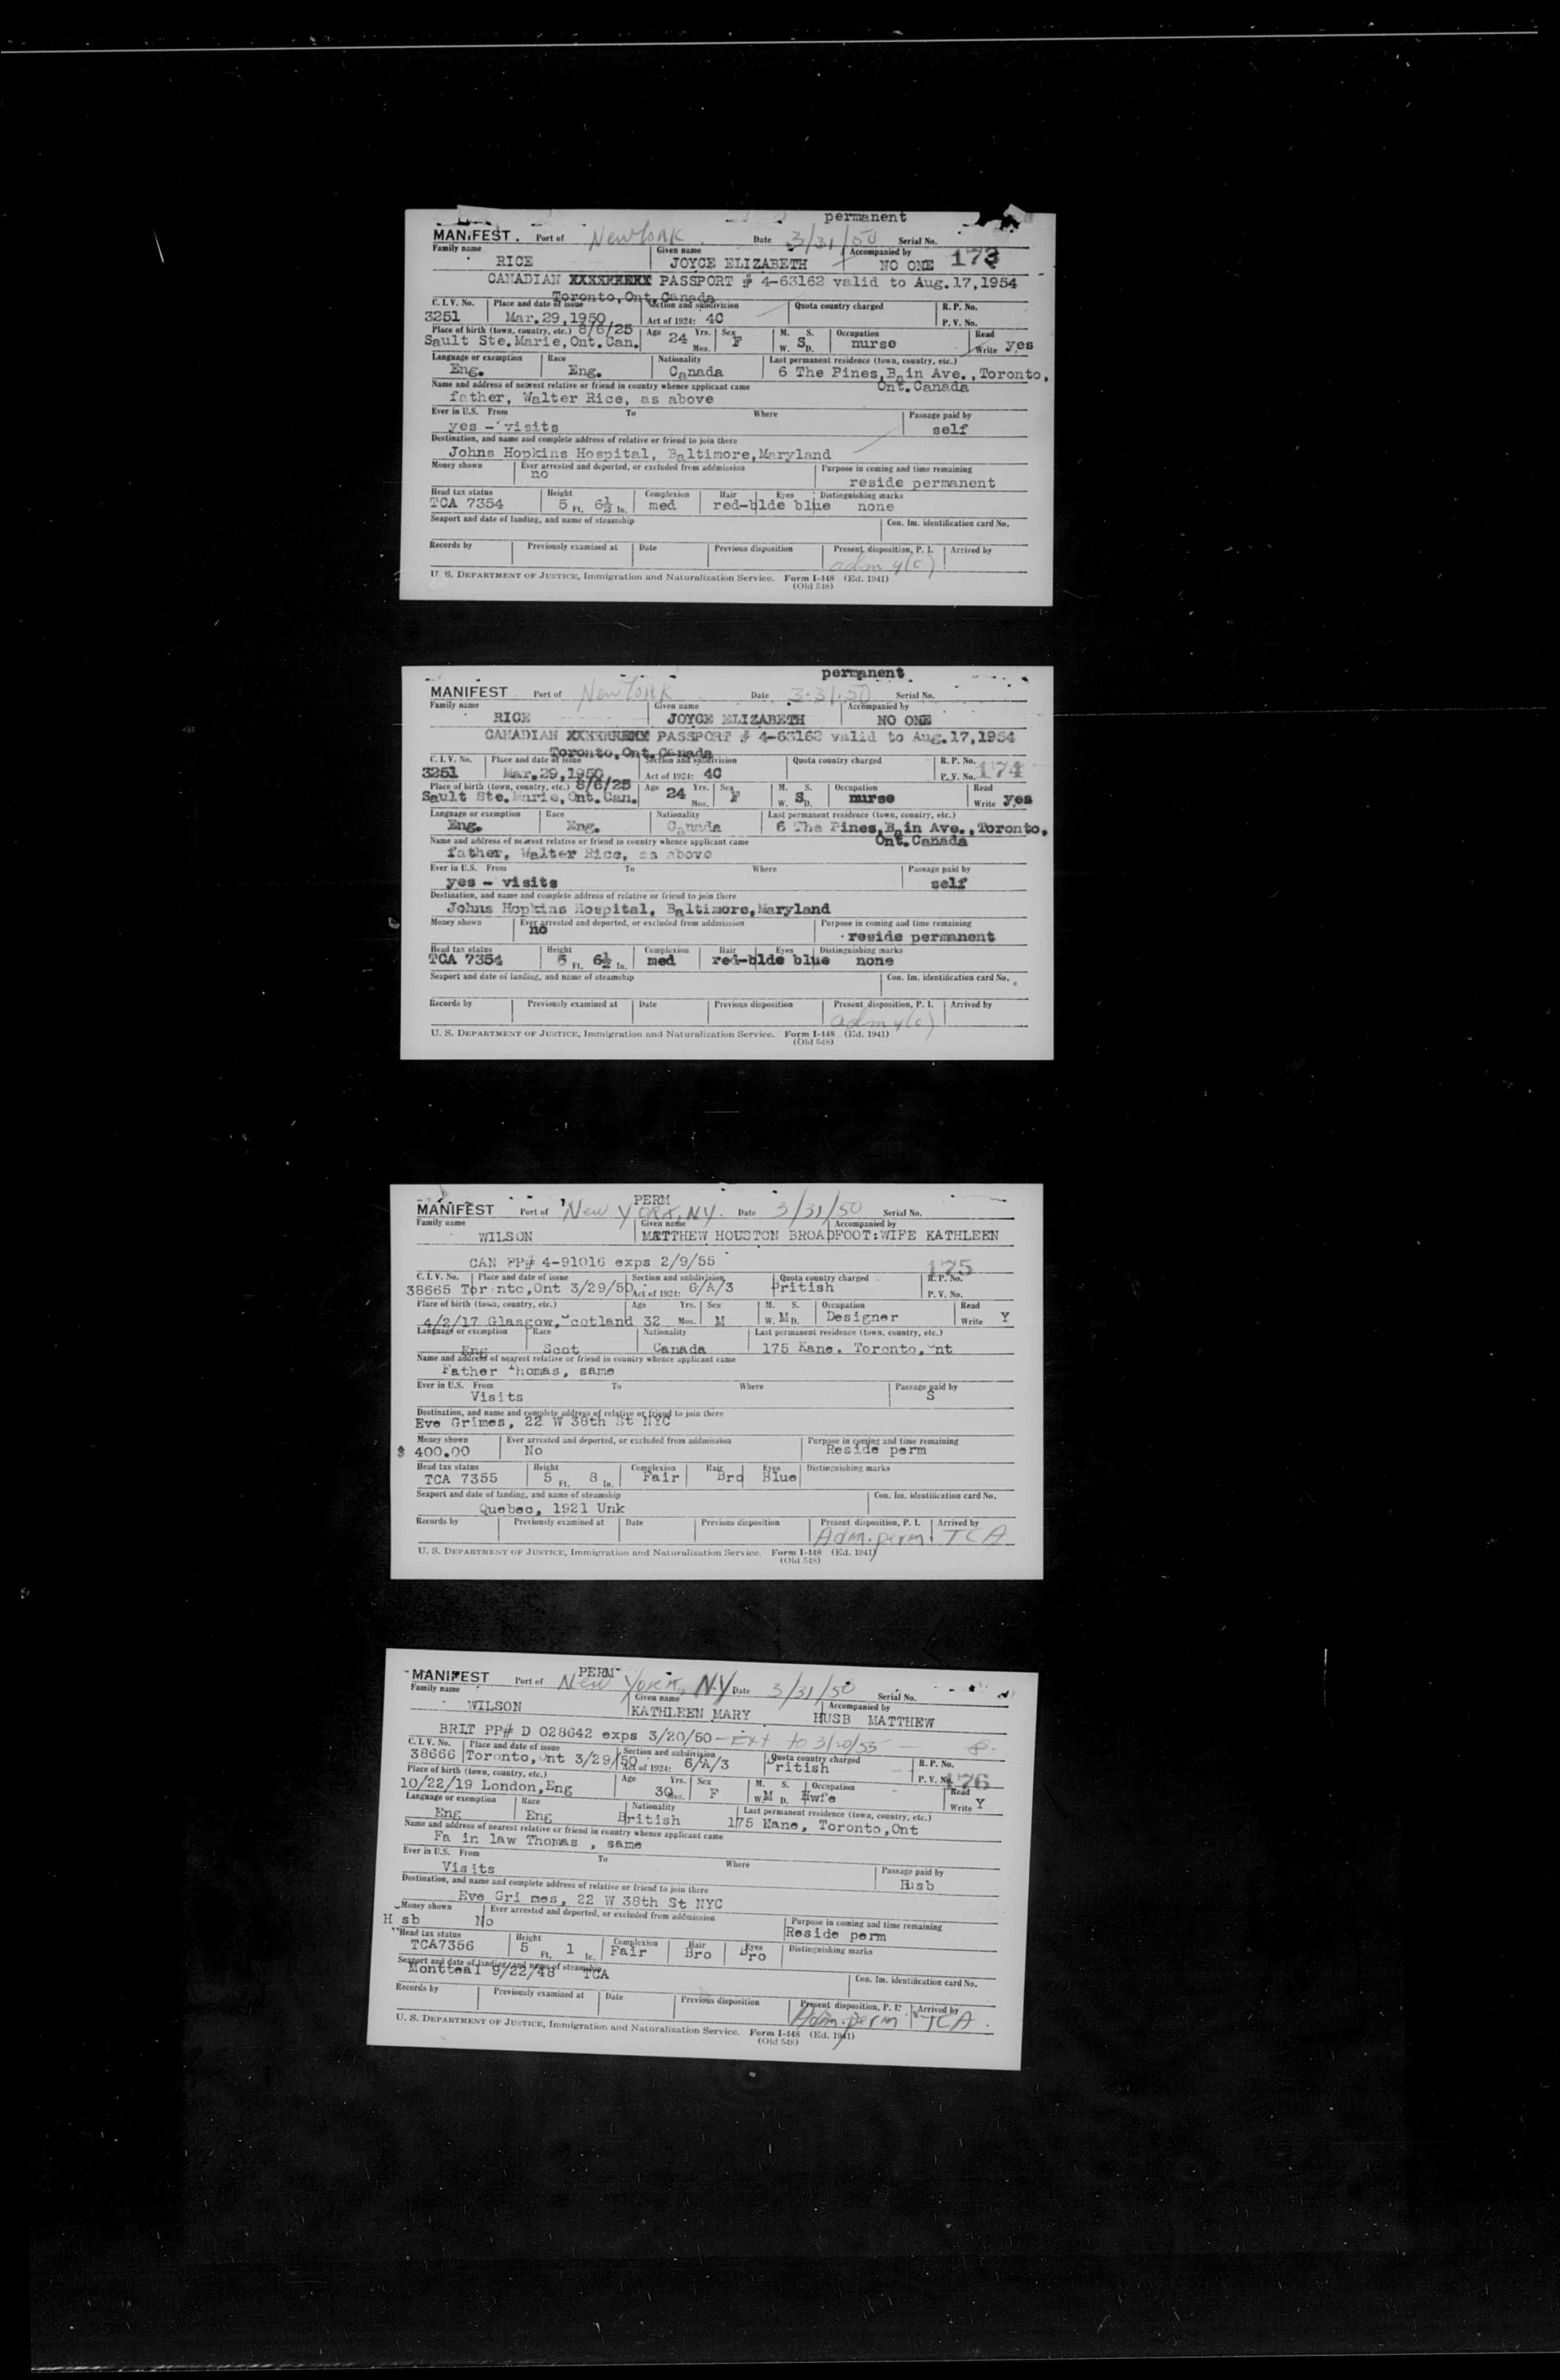 permanent
MANIFEST. Port of New York Date 3/31/50 Serial No.
Family name Given name Accompanied by 173
RICE JOYCE ELIZABETH NO ONE
CANADIAN PASSPORT # 4-63162 valid to Aug.17,1954
Toronto,Ont.Canada
C. I. V. No. Place and date of issue Section and subdivision Quota country charged R. P. No.
3251 Mar.29,1950 Act of 1924: 4C P. V. No.
Place of birth (town, country, etc.) 8/6/25 Age 24 Yrs. Sex M. S. Occupation Read
Sault Ste.Marie,Ont.Can. Mos. F W. S D. nurse Write yes
Language or exemption Race Nationality Last permanent residence (town, country, etc.)
Eng. Eng. Canada 6 The Pines,Bain Ave.,Toronto,
Name and address of nearest relative or friend in country whence applicant came Ont.Canada
father, Walter Rice, as above
Ever in U.S. From To Where Passage paid by
yes - visits self
Destination, and name and complete address of relative or friend to join there
Johns Hopkins Hospital, Baltimore,Maryland
Money shown Ever arrested and deported, or excluded from admission Purpose in coming and time remaining
no reside permanent
Head tax status Height Complexion Hair Eyes Distinguishing marks
TCA 7354 5 Ft. 6½ In. med red-blde blue none
Seaport and date of landing, and name of steamship Con. Im. identification card No.
Records by Previously examined at Date Previous disposition Present disposition, P. I. Arrived by
adm 4(c)
U. S. DEPARTMENT OF JUSTICE, Immigration and Naturalization Service. Form I-448 (Ed. 1941)
(Old 548)
permanent
MANIFEST Port of New York Date 3.31.50 Serial No.
Family name Given name Accompanied by
RICE JOYCE ELIZABETH NO ONE
CANADIAN PASSPORT # 4-63162 valid to Aug.17,1954
Toronto,Ont.Canada
C. I. V. No. Place and date of issue Section and subdivision Quota country charged R. P. No.
3251 Mar.29,1950 Act of 1924: 4C P. V. No. 174
Place of birth (town, country, etc.) 8/6/25 Age 24 Yrs. Sex M. S. Occupation Read
Sault Ste.Marie,Ont.Can. Mos. F W. S D. nurse Write yes
Language or exemption Race Nationality Last permanent residence (town, country, etc.)
Eng. Eng. Canada 6 The Pines,Bain Ave.,Toronto,
Name and address of nearest relative or friend in country whence applicant came Ont.Canada
father, Walter Rice, as above
Ever in U.S. From To Where Passage paid by
yes - visits self
Destination, and name and complete address of relative or friend to join there
Johns Hopkins Hospital, Baltimore,Maryland
Money shown Ever arrested and deported, or excluded from admission Purpose in coming and time remaining
no reside permanent
Head tax status Height Complexion Hair Eyes Distinguishing marks
TCA 7354 5 Ft. 6½ In. med red-blde blue none
Seaport and date of landing, and name of steamship Con. Im. identification card No.
Records by Previously examined at Date Previous disposition Present disposition, P. I. Arrived by
adm 4(c)
U. S. DEPARTMENT OF JUSTICE, Immigration and Naturalization Service. Form I-448 (Ed. 1941)
(Old 548)
PERM
MANIFEST Port of New YORK, NY. Date 3/31/50 Serial No.
Family name Given name Accompanied by
WILSON MATTHEW HOUSTON BROADFOOT:WIFE KATHLEEN
CAN PP# 4-91016 exps 2/9/55 175
C. I. V. No. Place and date of issue Section and subdivision Quota country charged R. P. No.
38665 Toronto,Ont 3/29/50 Act of 1924: 6/A/3 British P. V. No.
Place of birth (town, country, etc.) Age Yrs. Sex M. S. Occupation Read
4/2/17 Glasgow, Scotland 32 Mos. M W. M D. Designer Write Y
Language or exemption Race Nationality Last permanent residence (town, country, etc.)
Eng Scot Canada 175 Kane. Toronto,Ont
Name and address of nearest relative or friend in country whence applicant came
Father Thomas, same
Ever in U.S. From To Where Passage paid by
Visits S
Destination, and name and complete address of relative or friend to join there
Eve Grimes, 22 W 38th St NYC
Money shown Ever arrested and deported, or excluded from admission Purpose in coming and time remaining
$ 400.00 No Reside perm
Head tax status Height Complexion Hair Eyes Distinguishing marks
TCA 7355 5 Ft. 8 In. Fair Bro Blue
Seaport and date of landing, and name of steamship Con. Im. identification card No.
Quebec, 1921 Unk
Records by Previously examined at Date Previous disposition Present disposition, P. I. Arrived by
Adm. perm. TCA
U. S. DEPARTMENT OF JUSTICE, Immigration and Naturalization Service. Form I-448 (Ed. 1941)
(Old 548)
PERM
MANIFEST Port of New York, N.Y Date 3/31/50 Serial No.
Family name Given name Accompanied by
WILSON KATHLEEN MARY HUSB MATTHEW
BRIT PP# D 028642 exps 3/20/50 - Ext to 3/20/55
C. I. V. No. Place and date of issue Section and subdivision Quota country charged R. P. No.
38666 Toronto,Ont 3/29/50 Act of 1924: 6/A/3 British P. V. No. 176
Place of birth (town, country, etc.) Age Yrs. Sex M. S. Occupation Read
10/22/19 London,Eng 30 Mos. F W. M D. Hwfe Write Y
Language or exemption Race Nationality Last permanent residence (town, country, etc.)
Eng Eng British 175 Kane, Toronto,Ont
Name and address of nearest relative or friend in country whence applicant came
Fa in law Thomas , same
Ever in U.S. From To Where Passage paid by
Visits Husb
Destination, and name and complete address of relative or friend to join there
Eve Gri mes, 22 W 38th St NYC
Money shown Ever arrested and deported, or excluded from admission Purpose in coming and time remaining
H sb No Reside perm
Head tax status Height Complexion Hair Eyes Distinguishing marks
TCA7356 5 Ft. 1 In. Fair Bro Bro
Seaport and date of landing, and name of steamship Con. Im. identification card No.
Montteal 9/22/48 TCA
Records by Previously examined at Date Previous disposition Present disposition, P. I. Arrived by
Adm. perm TCA
U. S. DEPARTMENT OF JUSTICE, Immigration and Naturalization Service. Form I-448 (Ed. 1941)
(Old 548)